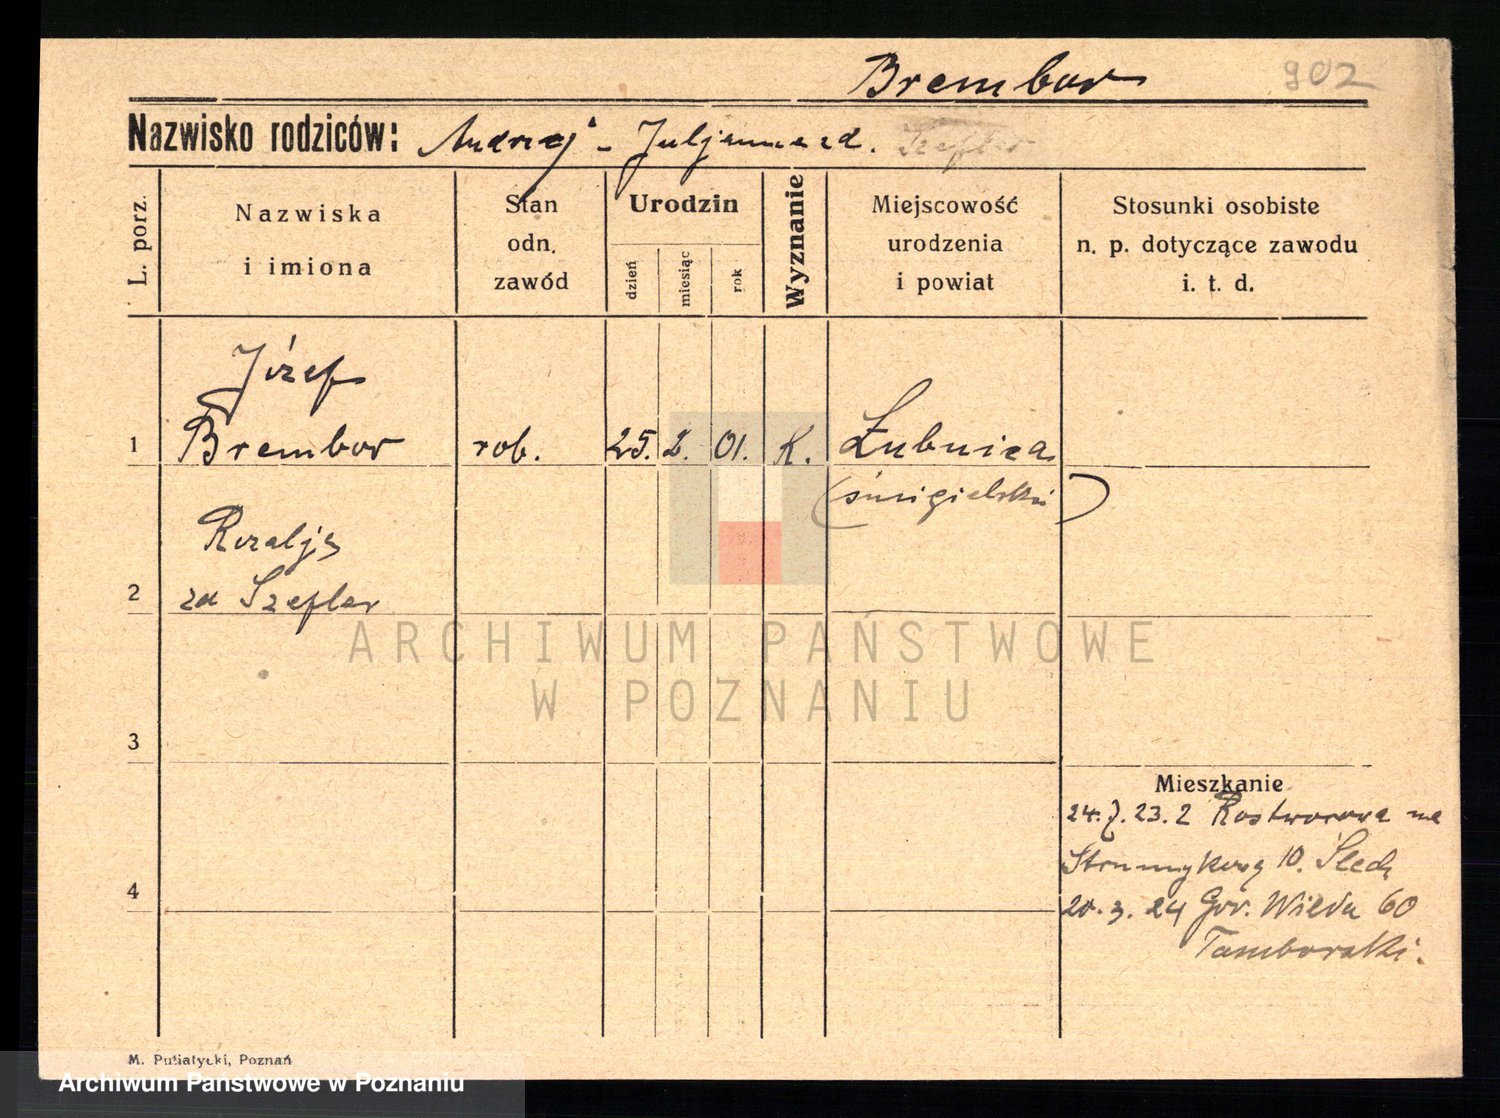 Brembor 902
Nazwisko rodziców: Andrzej - Juljanna zd. Szefler
L. porz.
Nazwiska
i imiona
Stan
odn.
zawód
Urodzin
dzień
miesiąc
rok
Wyznanie
Miejscowość
urodzenia
i powiat
Stosunki osobiste
n. p. dotyczące zawodu
i. t. d.
Józef
1 Brembor rob. 25. 2. 01. K. Łubnica
(śmigielski)
Rozalja
2 zd Szefler
ARCHIWUM PAŃSTWOWE
W POZNANIU
3
Mieszkanie
24. 23. z Rostworowa na
Strumykową 10.
4
20. 3. 24 Gór. Wilda 60
Tamborski.
M. Putiatycki, Poznań
Archiwum Państwowe w Poznaniu